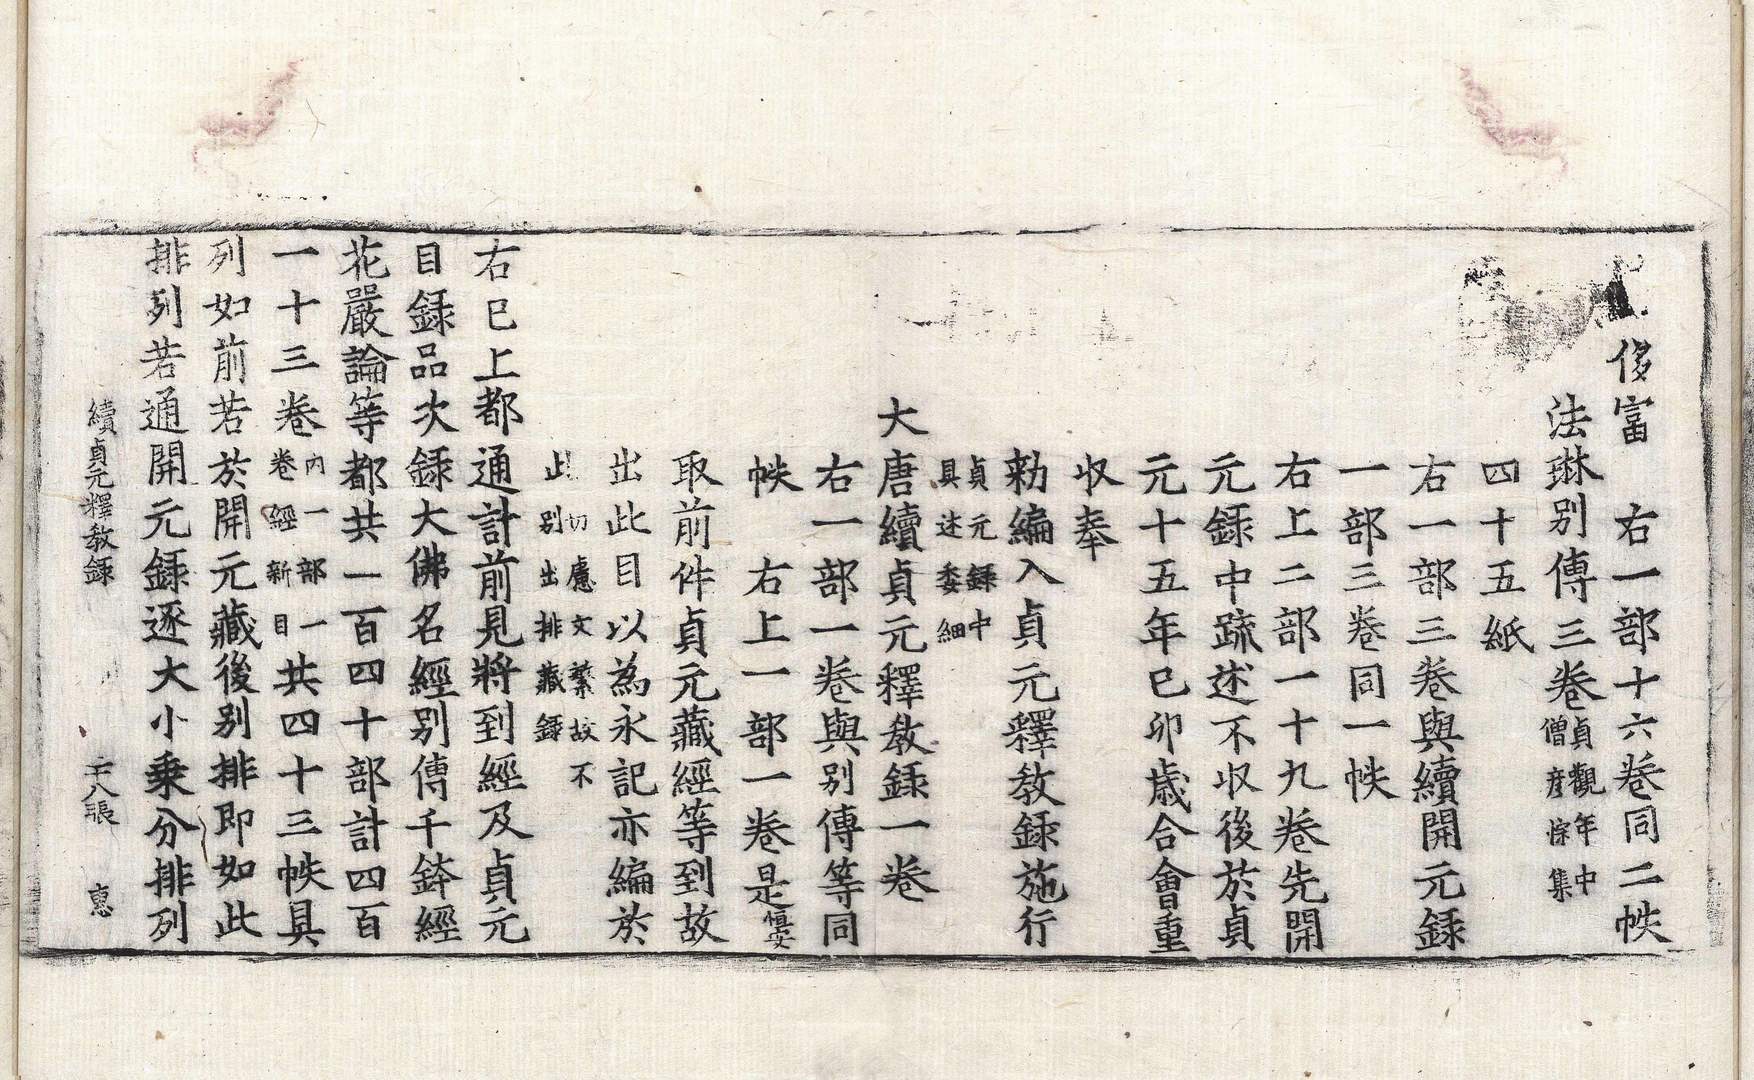 侈富　右一部十六卷同二帙
法琳別傳三卷貞觀年中僧彦悰集
四十五紙
右一部三卷與續開元録
一部三卷同一帙
右上二部一十九卷先開
元録中䟽述不収後於貞
元十五年巳卯歳合會重
収奉
勑編入貞元釋教録施行
貞元録中具述委細
大唐續貞元釋教録一卷
右一部一卷與別傳等同
帙　右上一部一卷是恒安
取前件貞元藏經等到故
出此目以為永記亦編於
此切慮文繁故不別出排藏録
右巳上都通計前見將到經及貞元
目録品次録大佛名經別傳千鉢經
花嚴論等都共一百四十部計四百
一十三卷内一部一卷經新目共四十三帙具
列如前若於開元藏後別排即如此
排列若通開元録逐大小乘分排列
續貞元釋教録　十八張　惠